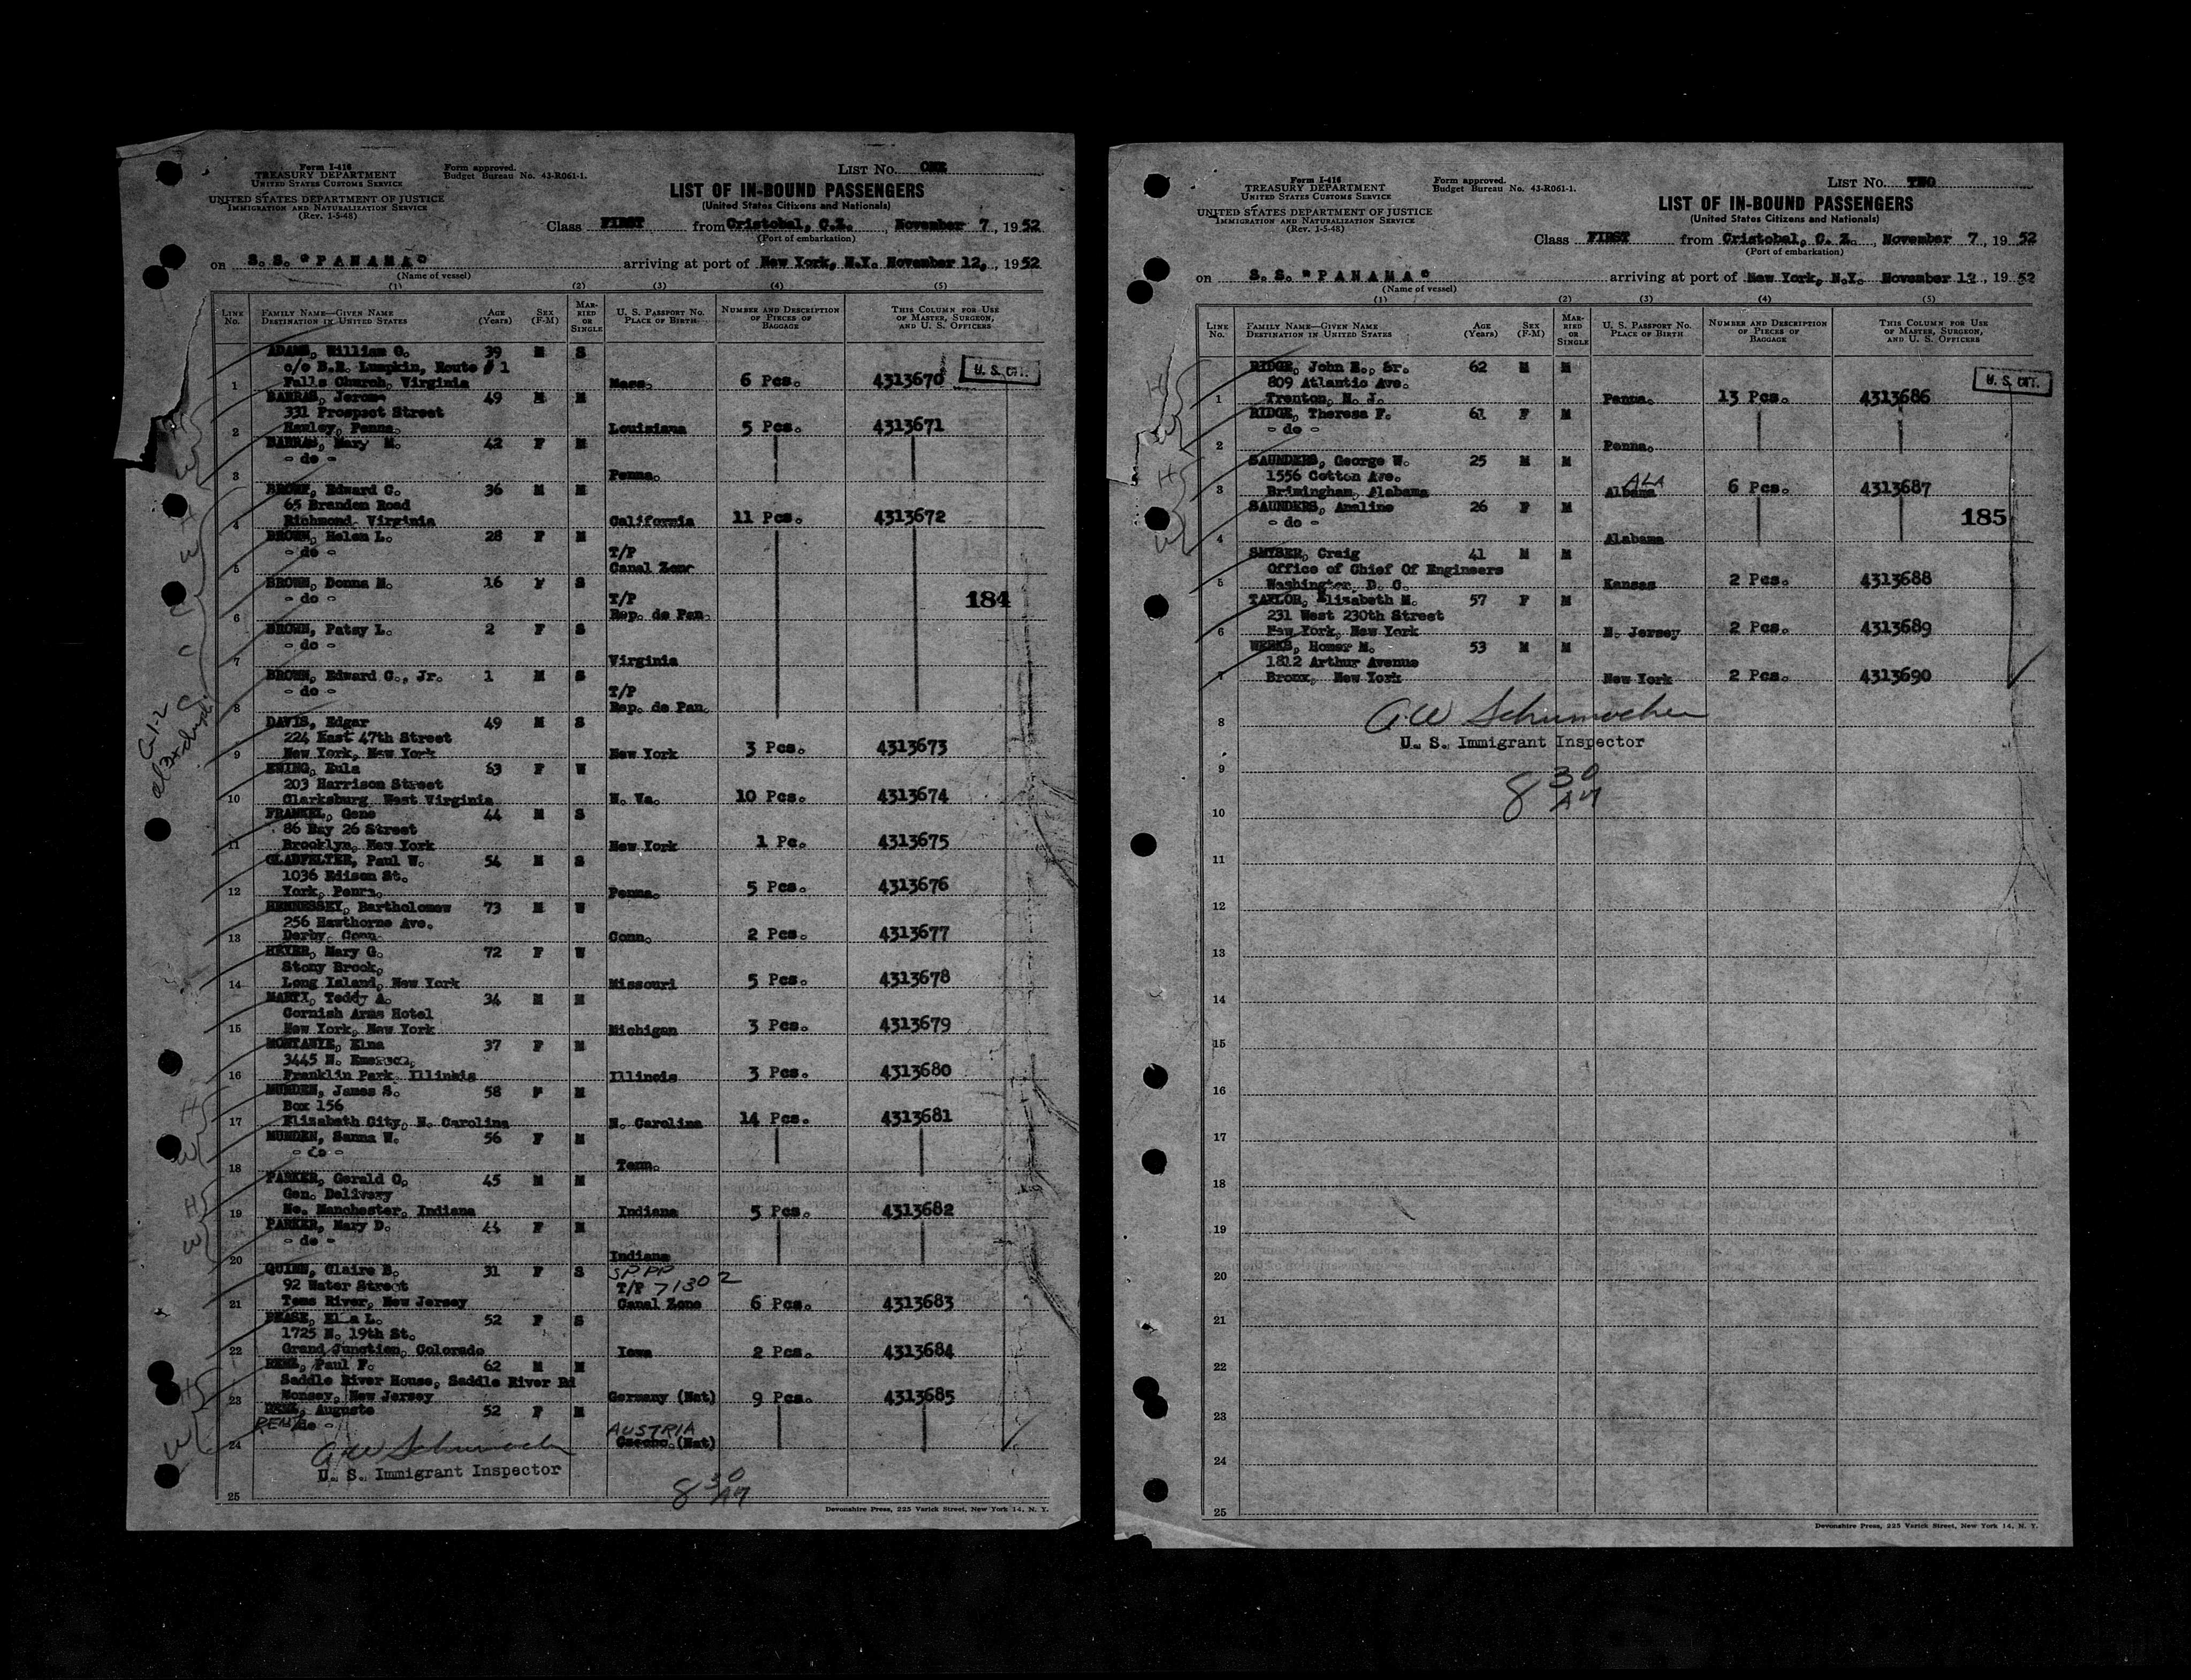 Form I-416
TREASURY DEPARTMENT
UNITED STATES CUSTOMS SERVICE
UNITED STATES DEPARTMENT OF JUSTICE
IMMIGRATION AND NATURALIZATION SERVICE
(Rev. 1-5-48)
Form approved.
Budget Bureau No. 43-R061-1.
LIST No. ONE
LIST OF IN-BOUND PASSENGERS
(United States Citizens and Nationals)
Class FIRST from Cristobal, C.Z., November 7, 1952
(Port of embarkation)
on S.S. "PANAMA" arriving at port of New York, N.Y. November 12, 1952
(Name of vessel)
(1) (2) (3) (4) (5)
LINE No. FAMILY NAME—GIVEN NAME DESTINATION IN UNITED STATES AGE (Years) SEX (F-M) MARRIED OR SINGLE U. S. PASSPORT NO. PLACE OF BIRTH NUMBER AND DESCRIPTION OF PIECES OF BAGGAGE THIS COLUMN FOR USE OF MASTER, SURGEON, AND U. S. OFFICERS
ADAMS, William G. 39 M S
c/o B.E. Lumpkin, Route # 1
1 Falls Church, Virginia Mass. 6 Pcs. 4313670 U. S. CIT.
BARRAS, Jerome 49 M M
331 Prospect Street
2 Hawley, Penna. Louisiana 5 Pcs. 4313671
BARRAS, Mary M. 42 F M
- do -
3 Penna.
BROWN, Edward C. 36 M M
65 Branden Road
4 Richmond, Virginia California 11 Pcs. 4313672
BROWN, Helen L. 28 F M
- do - T/P
5 Canal Zone
BROWN, Donna M. 16 F S
- do - T/P
6 Rep. de Pan. 184
BROWN, Patsy L. 2 F S
- do -
7 Virginia
BROWN, Edward C., Jr. 1 M S
- do - T/P
8 Rep. de Pan.
DAVIS, Edgar 49 M S
224 East 47th Street
9 New York, New York New York 3 Pcs. 4313673
EWING, Eula 63 F W
203 Harrison Street
10 Clarksburg, West Virginia W. Va. 10 Pcs. 4313674
FRANKEL, Gene 44 M S
86 Bay 26 Street
11 Brooklyn, New York New York 1 Pc. 4313675
GLADFELTER, Paul W. 54 M S
1036 Edison St.
12 York, Penna. Penna. 5 Pcs. 4313676
HENNESSEY, Bartholomew 73 M W
256 Hawthorne Ave.
13 Derby, Conn. Conn. 2 Pcs. 4313677
HEYER, Mary G. 72 F W
Stony Brook,
14 Long Island, New York Missouri 5 Pcs. 4313678
MARTX, Teddy A. 34 M M
Cornish Arms Hotel
15 New York, New York Michigan 3 Pcs. 4313679
MONTANYE, Elna 37 F M
3445 N. Emerson,
16 Franklin Park, Illinois Illinois 3 Pcs. 4313680
MUNDEN, James S. 58 F M
Box 156
17 Elizabeth City, N. Carolina N. Carolina 14 Pcs. 4313681
MUNDEN, Sanna W. 56 F M
- do -
18 Tenn.
PARKER, Gerald O. 45 M M
Gen. Delivery
19 No. Manchester, Indiana Indiana 5 Pcs. 4313682
PARKER, Mary D. 44 F M
- do -
20 Indiana
QUINN, Claire B. 31 F S SP PP
92 Water Street T/P 71302
21 Toms River, New Jersey Canal Zone 6 Pcs. 4313683
PEASE, L. 52 F S
1725 N. 19th St.
22 Grand Junction, Colorado Iowa 2 Pcs. 4313684
Paul F. 62 M M
Saddle River House, Saddle River Rd
23 Monsey, New Jersey Germany (Nat) 9 Pcs. 4313685
Auguste 52 F M
do - AUSTRIA
24 Czecho. (Nat)
A W Schumacher
U. S. Immigrant Inspector
25 8 30 AM
Devonshire Press, 225 Varick Street, New York 14, N. Y.
Form I-416
TREASURY DEPARTMENT
UNITED STATES CUSTOMS SERVICE
UNITED STATES DEPARTMENT OF JUSTICE
IMMIGRATION AND NATURALIZATION SERVICE
(Rev. 1-5-48)
Form approved.
Budget Bureau No. 43-R061-1.
LIST No. TWO
LIST OF IN-BOUND PASSENGERS
(United States Citizens and Nationals)
Class FIRST from Cristobal, C. Z., November 7, 1952
(Port of embarkation)
on S. S. "PANAMA" arriving at port of New York, N.Y. November 12, 1952
(Name of vessel)
(1) (2) (3) (4) (5)
LINE No. FAMILY NAME—GIVEN NAME DESTINATION IN UNITED STATES AGE (Years) SEX (F-M) MARRIED OR SINGLE U. S. PASSPORT NO. PLACE OF BIRTH NUMBER AND DESCRIPTION OF PIECES OF BAGGAGE THIS COLUMN FOR USE OF MASTER, SURGEON, AND U. S. OFFICERS
RIDGE, John E., Sr. 62 M M
809 Atlantic Ave. U. S. CIT.
1 Trenton, N. J. Penna. 13 Pcs. 4313686
RIDGE, Theresa F. 61 F M
- do -
2 Penna.
SAUNDERS, George W. 25 M M
1556 Cotton Ave. ALA
3 Brimingham, Alabama Albama 6 Pcs. 4313687
SAUNDERS, Analine 26 F M
- do - 185
4 Alabama
SMYSER, Craig 41 M M
Office of Chief Of Engineers
5 Washington, D. C. Kansas 2 Pcs. 4313688
TAYLOR, Elizabeth M. 57 F M
231 West 230th Street
6 New York, New York N. Jersey 2 Pcs. 4313689
WEEKS, Homer M. 53 M M
1812 Arthur Avenue
7 Bronx, New York New York 2 Pcs. 4313690
8 A W Schumacher
U. S. Immigrant Inspector
9
8 30 AM
10
11
12
13
14
15
16
17
18
19
20
21
22
23
24
25
Devonshire Press, 225 Varick Street, New York 14, N. Y.